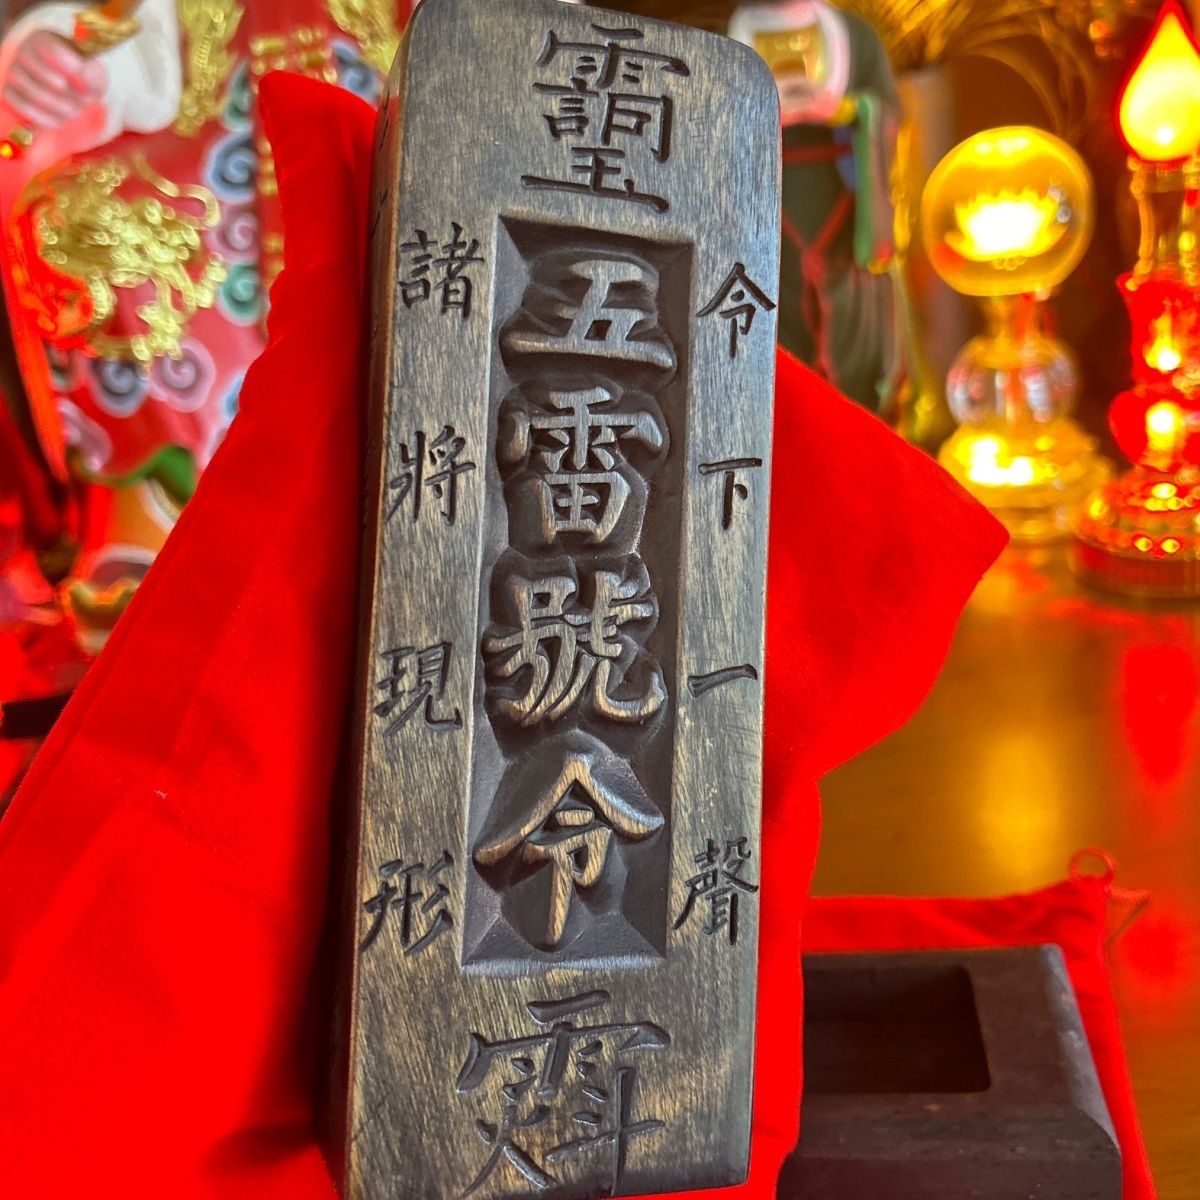 令下一聲
五雷號令
諸將現形